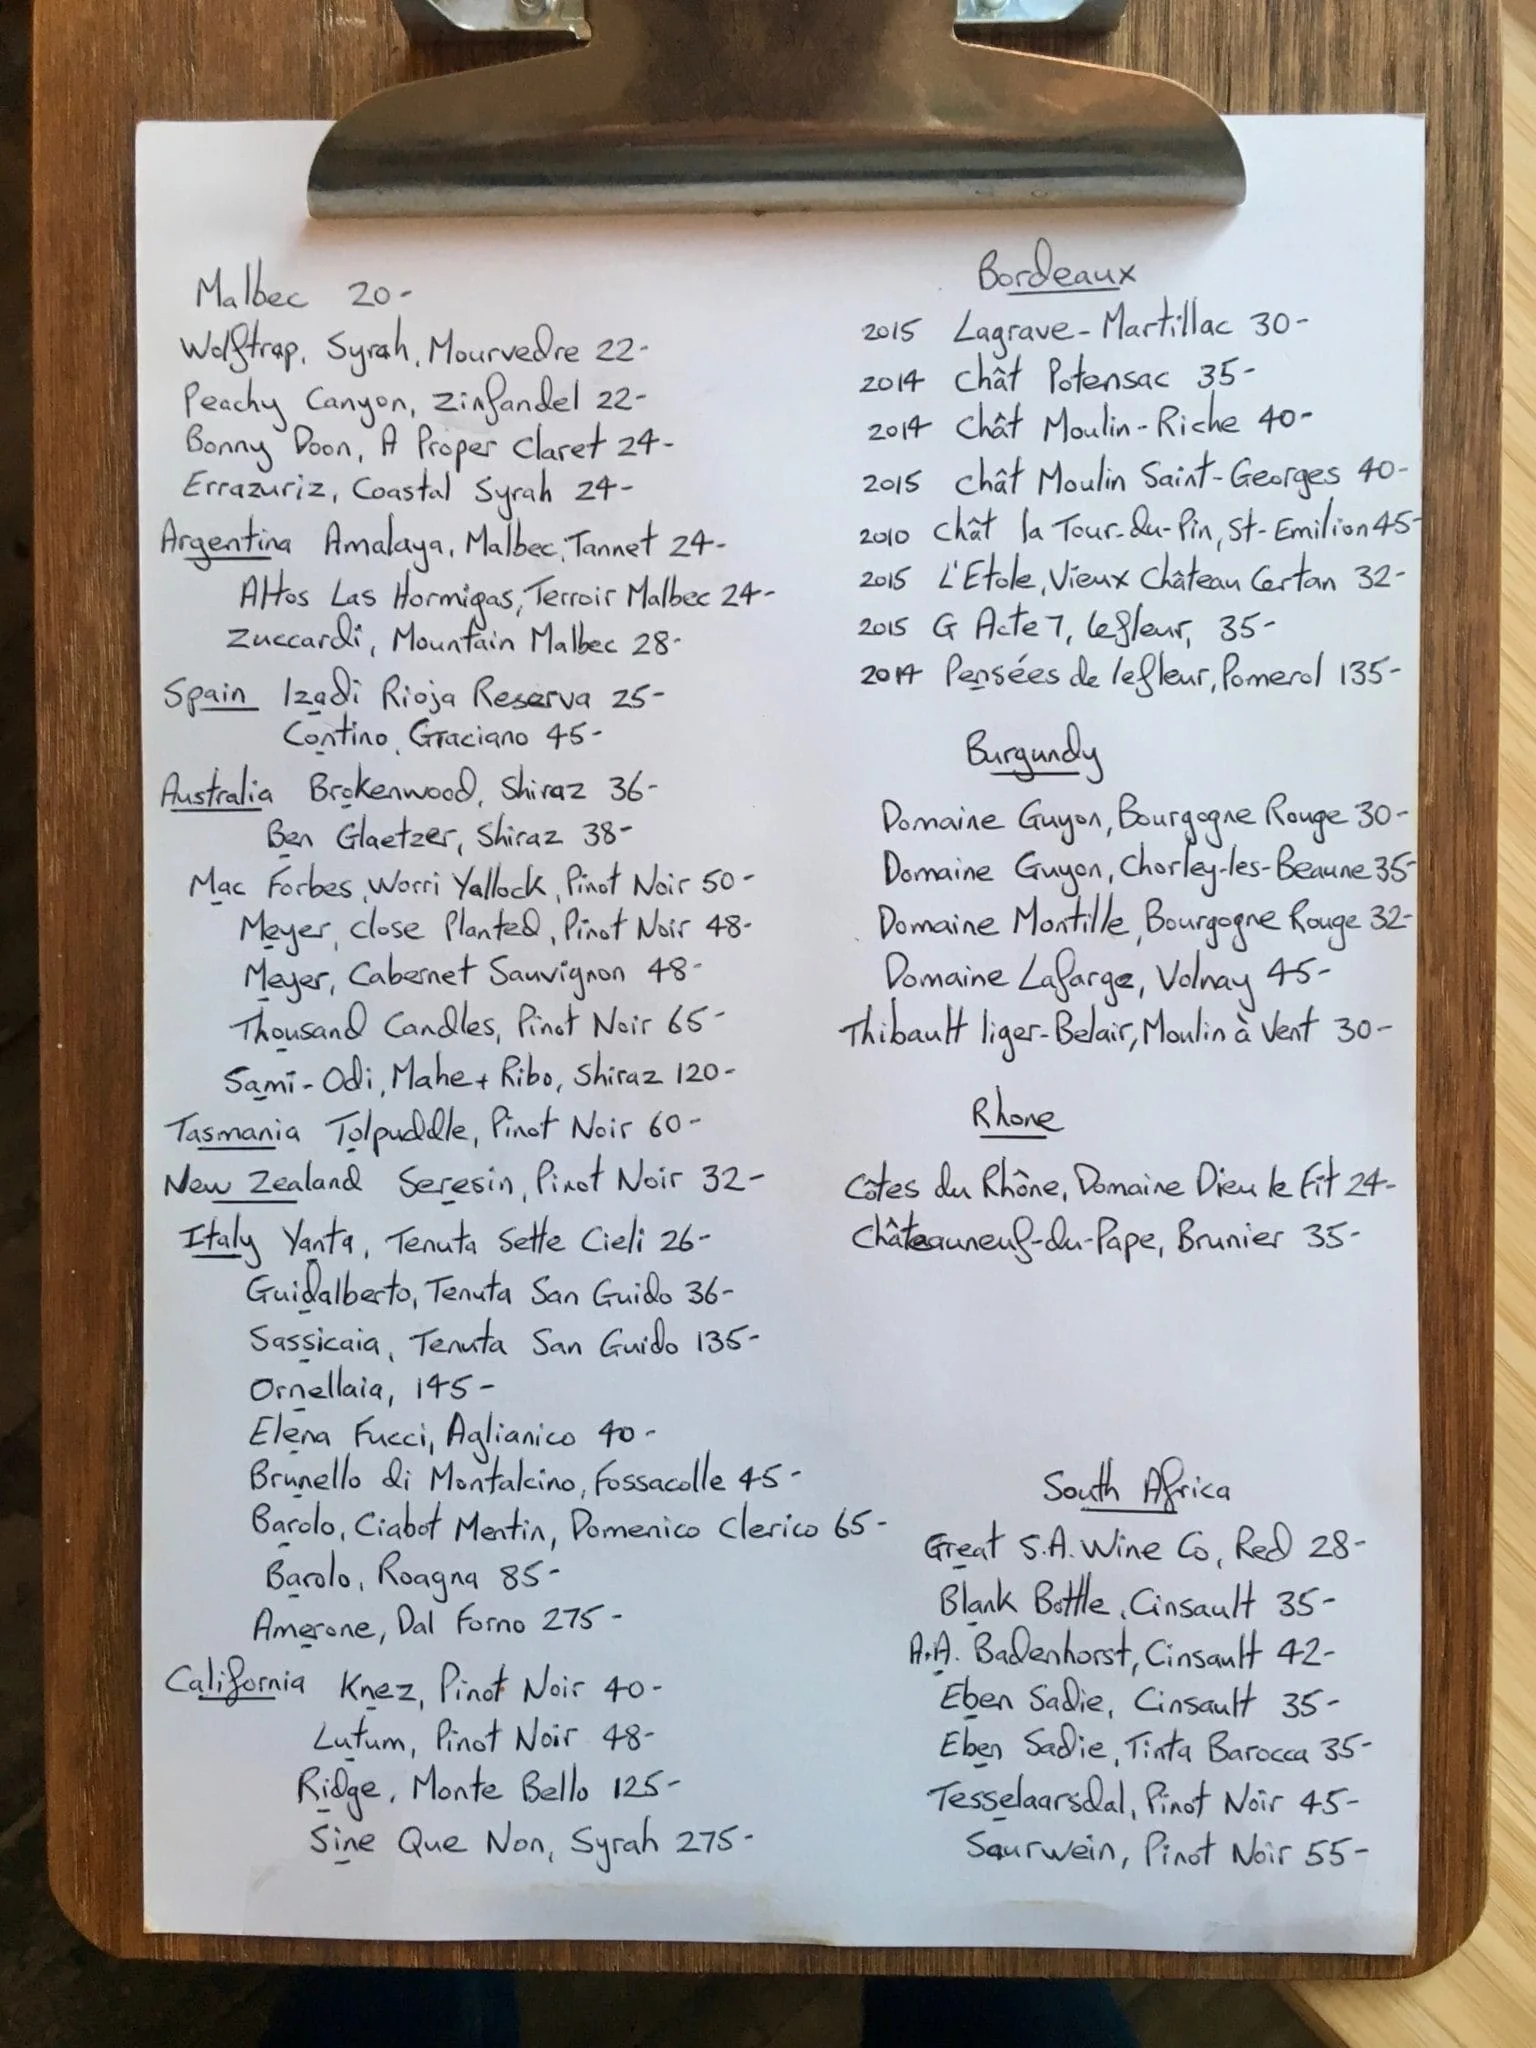 Malbec 20-
Wolftrap, Syrah, Mourvedre 22-
Peachy Canyon, Zinfandel 22-
Bonny Doon, A Proper Claret 24-
Errazuriz, Coastal Syrah 24-
Argentina Amalaya, Malbec, Tannet 24-
Altos Las Hormigas, Terroir Malbec 24-
Zuccardi, Mountain Malbec 28-
Spain Izadi Rioja Reserva 25-
Contino, Graciano 45-
Australia Brokenwood, Shiraz 36-
Ben Glaetzer, Shiraz 38-
Mac Forbes, Worri Yallock, Pinot Noir 50-
Meyer, Close Planted, Pinot Noir 48-
Meyer, Cabernet Sauvignon 48-
Thousand Candles, Pinot Noir 65-
Sami-Odi, Mahe + Ribo, Shiraz 120-
Tasmania Tolpuddle, Pinot Noir 60-
New Zealand Seresin, Pinot Noir 32-
Italy Yanta, Tenuta Sette Cieli 26-
Guidalberto, Tenuta San Guido 36-
Sassicaia, Tenuta San Guido 135-
Ornellaia, 145-
Elena Fucci, Aglianico 40-
Brunello di Montalcino, Fossacolle 45-
Barolo, Ciabot Mentin, Domenico Clerico 65-
Barolo, Roagna 85-
Amerone, Dal Forno 275-
California Knez, Pinot Noir 40-
Lutum, Pinot Noir 48-
Ridge, Monte Bello 125-
Sine Que Non, Syrah 275-
Bordeaux
2015 Lagrave-Martillac 30-
2014 Chât Potensac 35-
2014 Chât Moulin-Riche 40-
2015 Chât Moulin Saint-Georges 40-
2010 Chât la Tour-du-Pin, St-Emilion 45-
2015 L'Etole, Vieux Château Certan 32-
2015 G Acte 7, Lefleur, 35-
2014 Pensées de lefleur, Pomerol 135-
Burgundy
Domaine Guyon, Bourgogne Rouge 30-
Domaine Guyon, Chorley-les-Beaune 35-
Domaine Montille, Bourgogne Rouge 32-
Domaine Lafarge, Volnay 45-
Thibault liger-Belair, Moulin à Vent 30-
Rhone
Côtes du Rhône, Domaine Dieu le Fit 24-
Châteauneuf-du-Pape, Brunier 35-
South Africa
Great S.A. Wine Co, Red 28-
Blank Bottle, Cinsault 35-
A.A. Badenhorst, Cinsault 42-
Eben Sadie, Cinsault 35-
Eben Sadie, Tinta Barocca 35-
Tesselaarsdal, Pinot Noir 45-
Saurwein, Pinot Noir 55-